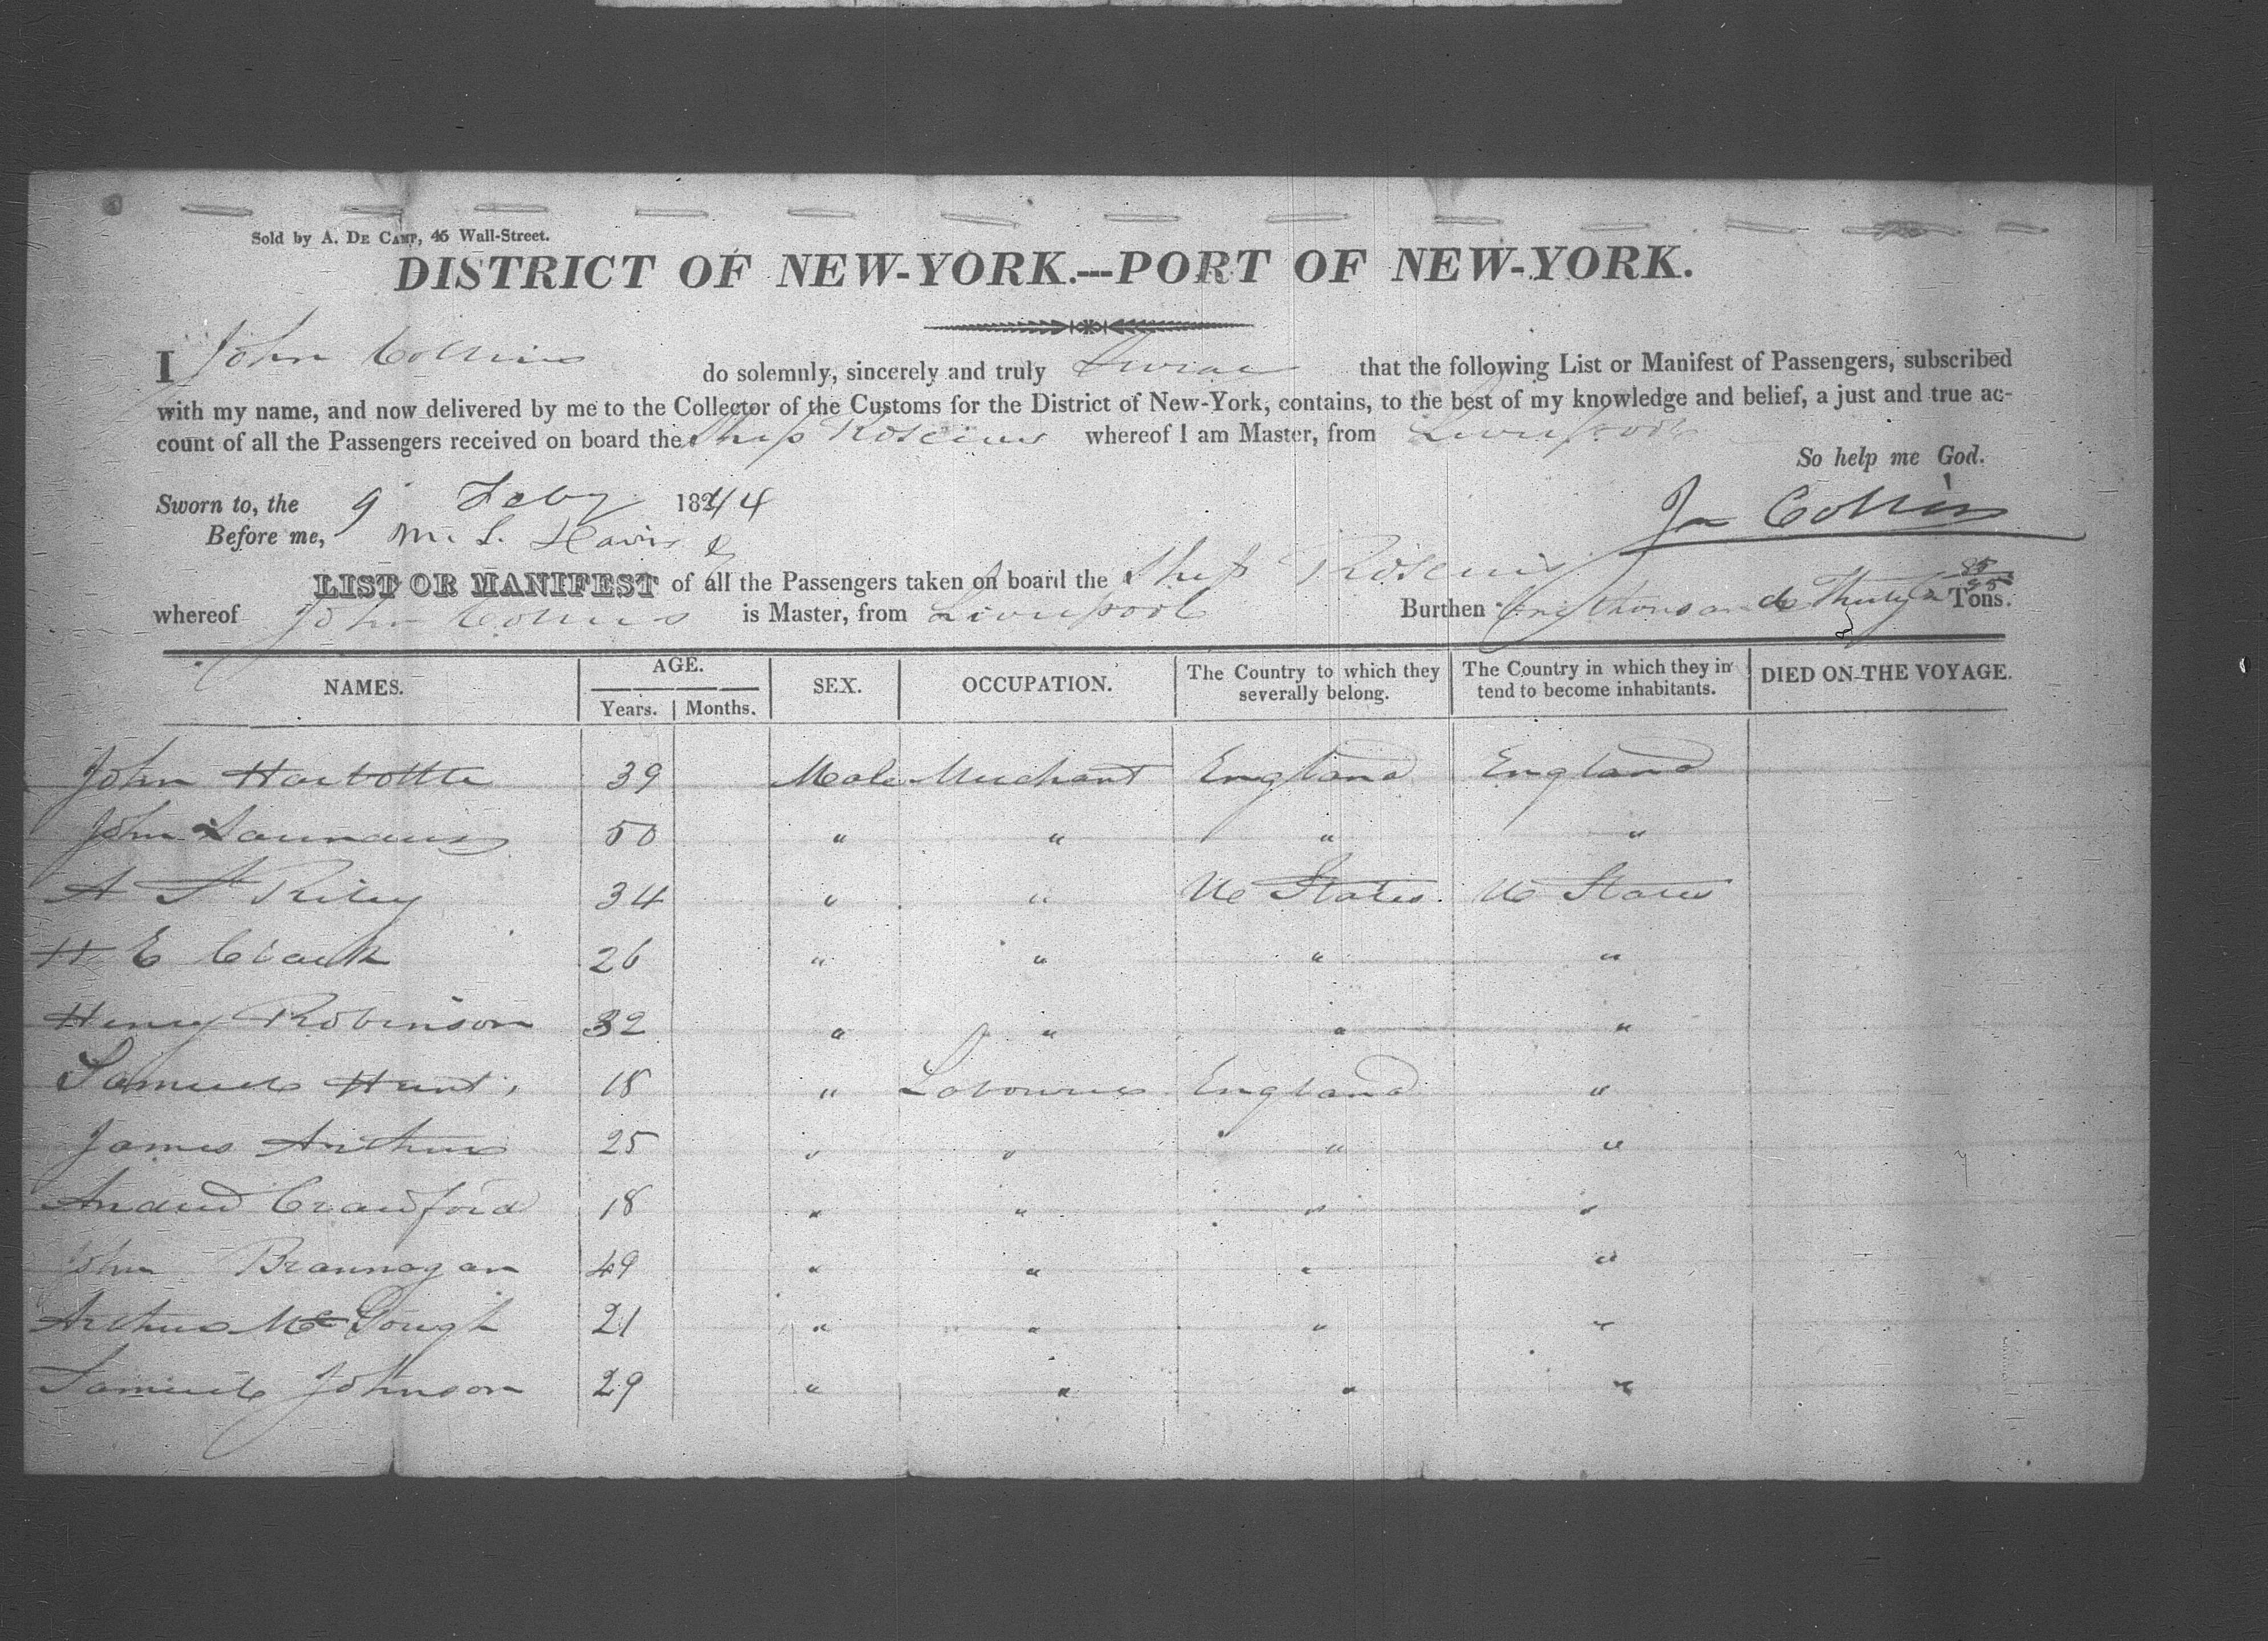 Sold by A. De Camp, 45 Wall-Street.
DISTRICT OF NEW-YORK.---PORT OF NEW-YORK.
I John Collins do solemnly, sincerely and truly Swear that the following List or Manifest of Passengers, subscribed
with my name, and now delivered by me to the Collector of the Customs for the District of New-York, contains, to the best of my knowledge and belief, a just and true ac-
count of all the Passengers received on board the Ship Roscius whereof I am Master, from Liverpool
So help me God.
Sworn to, the 9 Feby 1844
Jn Collins
Before me, M. L. Davis
LIST OR MANIFEST of all the Passengers taken on board the Ship Roscius
whereof John Collins is Master, from Liverpool Burthen One thousand & Thirty Tons.
NAMES. AGE. SEX. OCCUPATION. The Country to which they severally belong. The Country in which they intend to become inhabitants. DIED ON THE VOYAGE.
Years. Months.
John Harbottle 39 Male Merchant England England
John 50 " " " "
A St Riley 34 " " U States. U States
H E Clark 26 " " " "
Henry Robinson 32 " " " "
Samuel Hunt 18 " Labourer England "
James Arthur 25 " " " "
Andrew Crawford 18 " " " "
John Brannagan 49 " " " "
Arthur McGough 21 " " " "
Samuel Johnson 29 " " " "